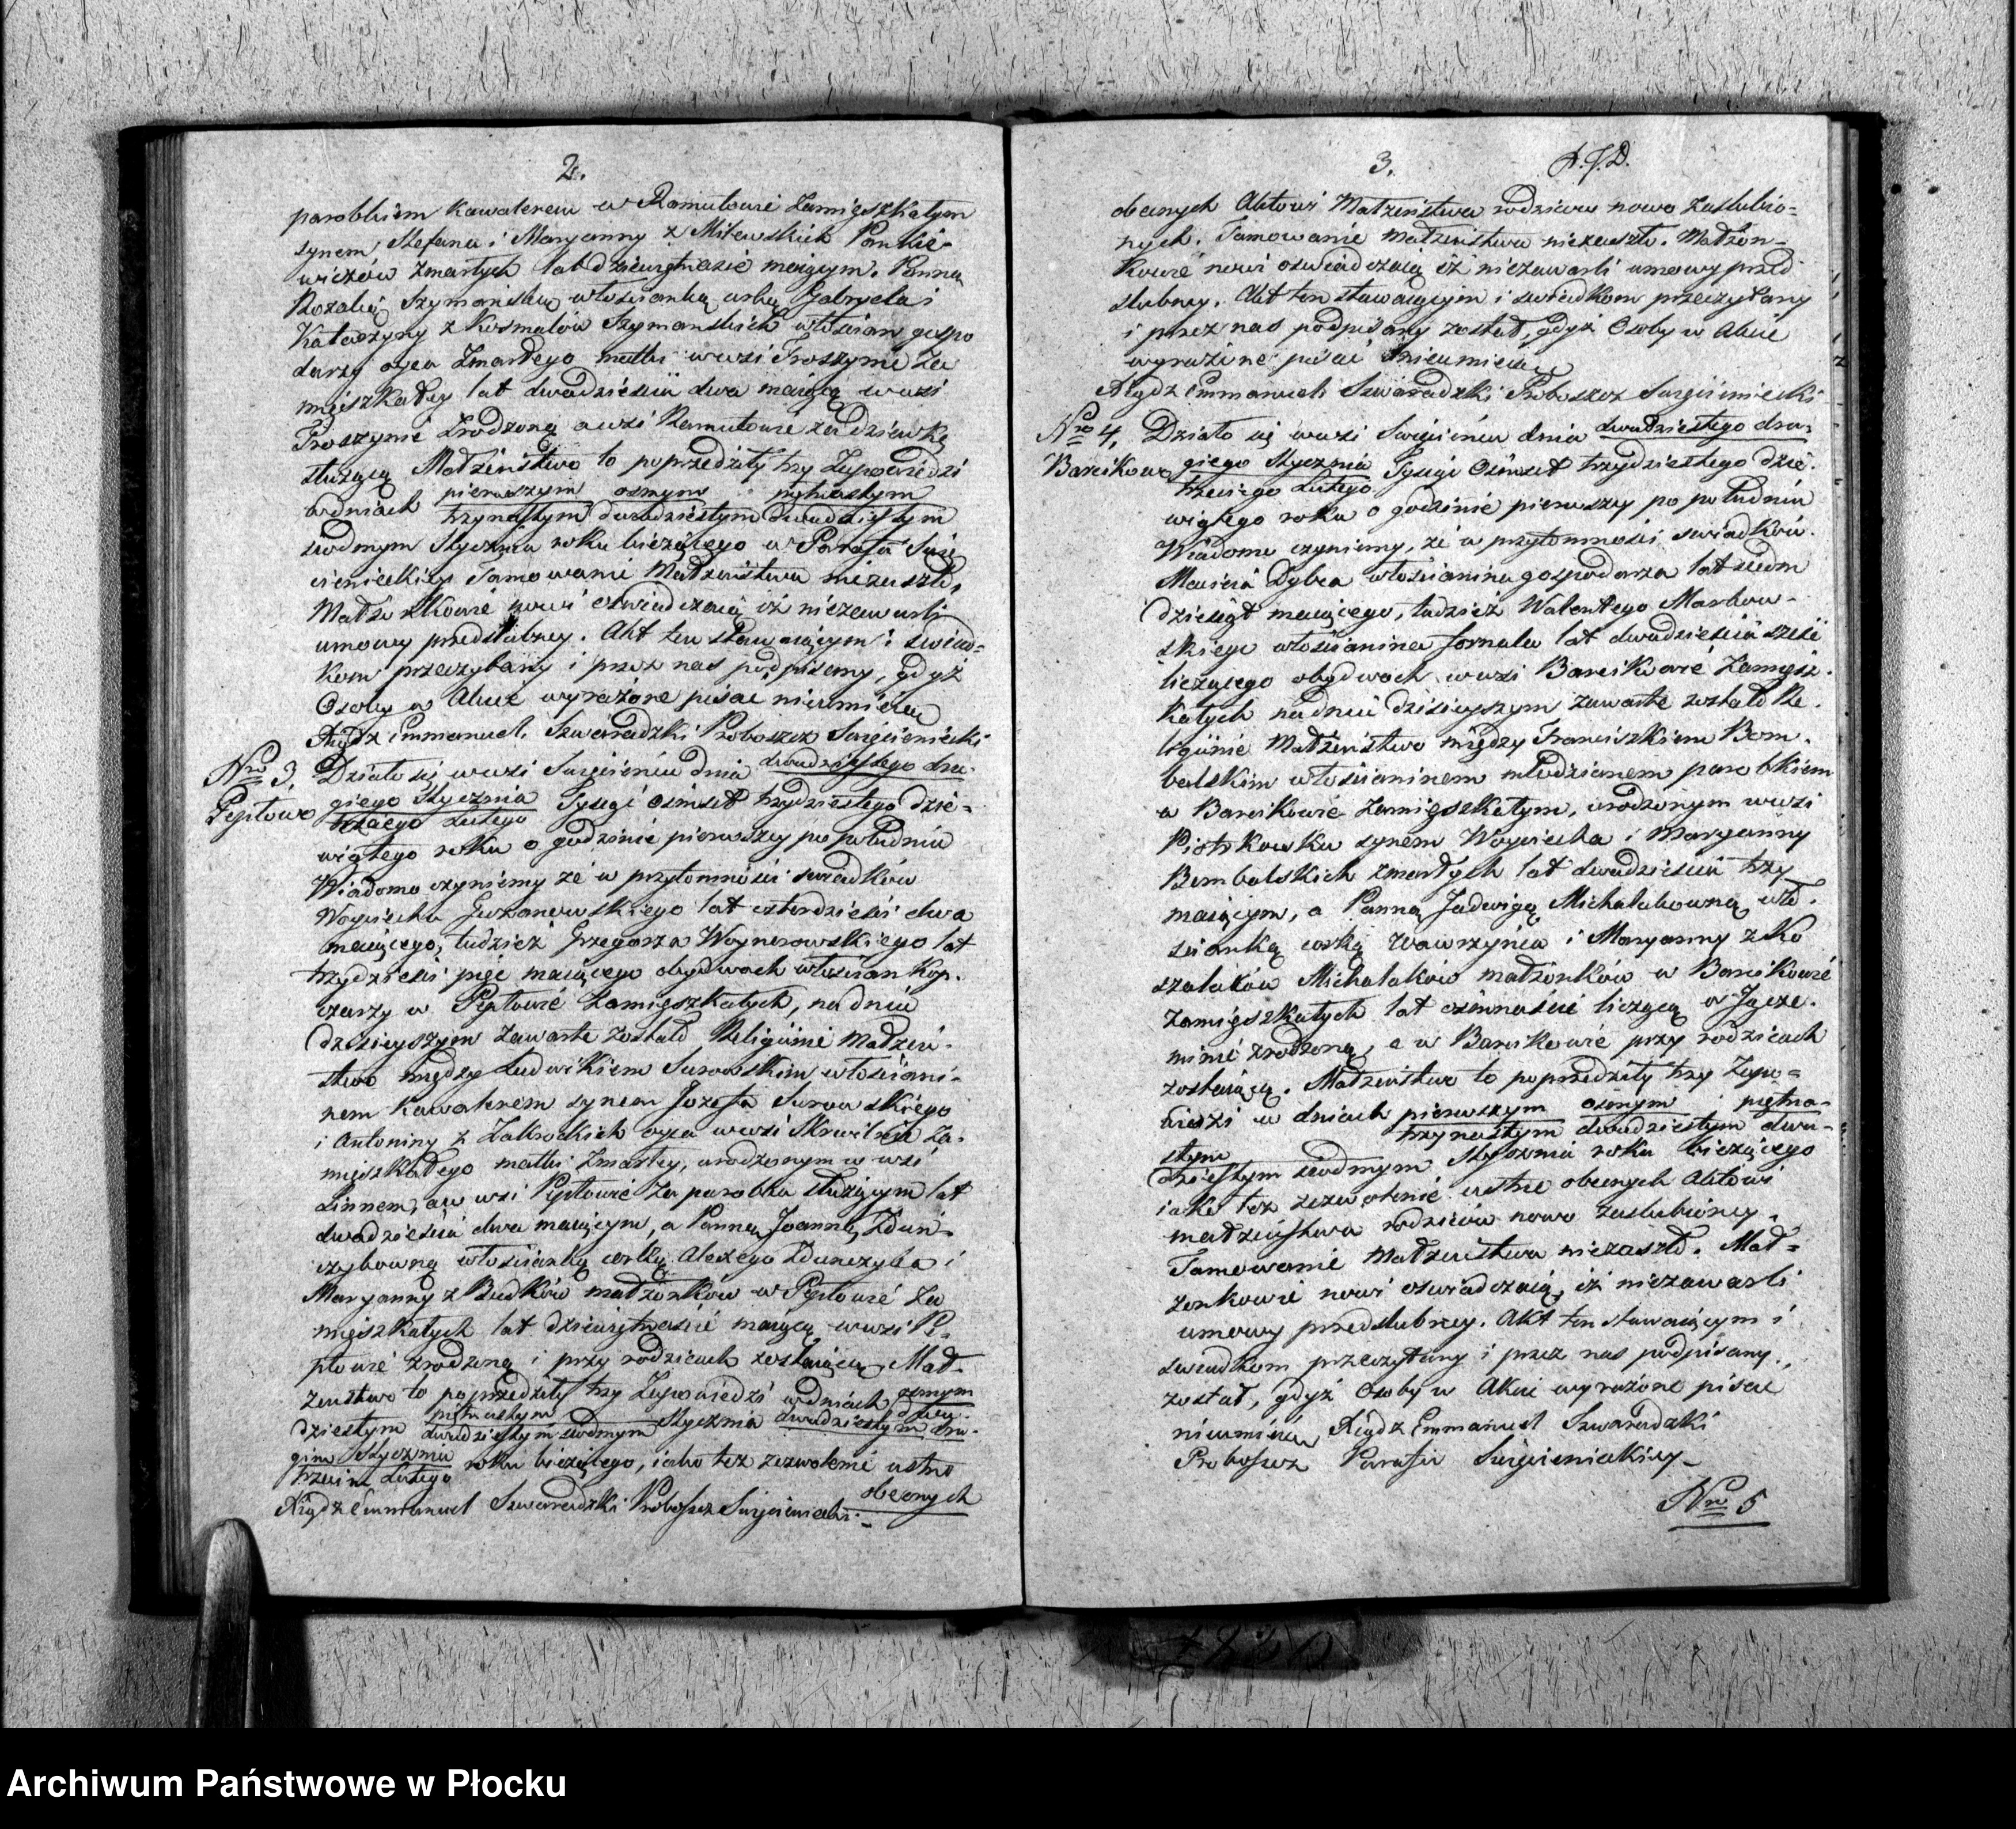 2.
parobkiem Kawalerem w Ramutowie Zamięszkałym
synem Stefana i Maryanny z Milewskich Pankie-
wiczów zmarłych lat dziewiętnaście maiącym. Panną
Rozalią Szymańską włościanką córką Gabryela i
Katarzyny z Kosmalów Szymańskich włościan gospo
darzy ojca Zmarłego matki w wsi Proszynie Za
mięszkałey lat dwadzieścia dwa maiącą w wsi
Proszynie zrodzoną a w wsi Ramutowie za dziewkę
służącą Małżeństwo to poprzedziły trzy Zapowiedzi
w dniach pierwszym osmym piętnastym
trzynastym dwudziestym dwudziestym
siodmym Stycznia roku bieżącego w Parafii Święcienieckiey
Tamowanie Małżeństwa niezaszło,
Małżonkowie nowi oświadczaią iż niezawarli
umowy przedślubney. Akt ten stawaiącym i świad-
kom przeczytany i przez nas podpisany, gdyż
Osoby w Akcie wyrażone pisać nieumieią
Xiądz Emmanuel Szwaradzki Proboszcz Święcieniecki
Nro 3. Działo się w wsi Święcieniu dnia dwudziestego dru-
Peptowo giego Stycznia Tysiąc Ośmset trzydziestego dzie-
trzeciego Lutego
wiątego roku o godzinie pierwszey po południu
Wiadomo czyniemy że w przytomności świadków
Woyciecha Guzanowskiego lat czterdzieści dwa
maiącego, tudzież Grzegorza Woynerowskiego lat
trzydzieści pięć maiącego obydwoch włościan Kop-
czarzy w Peptowie Zamięszkałych, na dniu
dzisieyszym Zawarte zostało Religiinie Małżeń-
stwo między Ludwikiem Surowskim włościani-
nem Kawalerem synem Jozefa Surowskiego
i Antoniny z Zakrockich oyca w wsi Skrwilnie Za-
mięszkałego matki Zmarłey, urodzonym w wsi
Linnem, a w wsi Peptowie Za parobka służącym lat
dwadzieścia dwa maiącym, a Panną Joanną Zduń-
czykowną włościanką corką Alexego Zdunczyka i
Maryanny z Budków małżonków w Peptowie Za
mięszkałych lat dziewiętnaście maiącą w wsi Pe-
ptowie zrodzoną i przy rodzicach zostaiącą. Mał-
żeństwo to poprzedziły trzy Zapowiedzi w dniach osmym
dwu-
dziestym piętnastym Stycznia dwudziestym dru-
dwudziestym siodmym
gim Stycznia roku bieżącego, iako też zezwolenie ustne
trzecim Lutego
obecnych
Xiądz Emmanuel Szwaradzki Proboszcz Święcieniecki.-
3. A.J.D.
obecnych Aktowi Małżeństwa rodziców nowo Zaslubio=
nych. Tamowanie małżeństwa niezaszło. Małżon-
kowie nowi oswiadczaią iż niezawarli umowy przed
slubney. Akt ten stawaiącym i świadkom przeczytany
i przez nas podpisany został, gdyż Osoby w Akcie
wyrażone pisać nieumieią
Xiądz Emmanuel Szwaradzki Proboszcz Święcieniecki
Nro 4. Działo się w wsi Święcieniu dnia dwudziestego dru-
Barcikowo giego Stycznia Tysiąc Ośmset trzydziestego dzie-
trzeciego Lutego
wiątego roku o godzinie pierwszey po południu
Wiadomo czyniemy, że w przytomności świadków.
Macieia Dybca włościanina gospodarza lat siedm
dziesiąt maiącego, tudzież Walentego Markow-
skiego włościanina fornala lat dwadzieścia sześć
liczącego obydwoch w wsi Barcikowie Zamięsz-
kałych na dniu dzisieyszym zawarte zostało Re-
ligiinie Małżeństwo między Franciszkiem Bom-
balskim włościaninem młodzianem parobkiem
w Barcikowie Zamięszkałym, urodzonym w wsi
Piotrkowku synem Woyciecha i Maryanny
Bombalskich zmarłych lat dwadzieścia trzy
maiącym, a Panną Jadwigą Michalakowną wło-
scianką corką Wawrzyńca i Maryanny z Ko
szalaków Michalaków małżonków w Barcikowie
zamięszkałych lat osmnaście liczącą w
zrodzoną, a w Barcikowie przy rodzicach
zostaiącą. Małżeństwo to poprzedziły trzy Zapo=
wiedzi w dniach pierwszym osmym i piętna-
trzynastym dwudziestym dwu-
stym
dziestym siodmym Stycznia roku bieżącego
iako też zezwolenie ustne obecnych Aktowi
małżeństwa rodziców nowo zaslubioney.
Tamowanie Małżeństwa niezaszło. Mał=
żonkowie nowi oswiadczaią, iż niezawarli
umowy przedslubney. Akt ten stawaiącym i
swiadkom przeczytany i przez nas podpisany.,
został, gdyż Osoby w Akcie wyrażone pisać
nieumieią Xiądz Emmanuel Szwaradzki
Proboszcz Parafii Święcienieckiey-
Nro 5
Archiwum Państwowe w Płocku